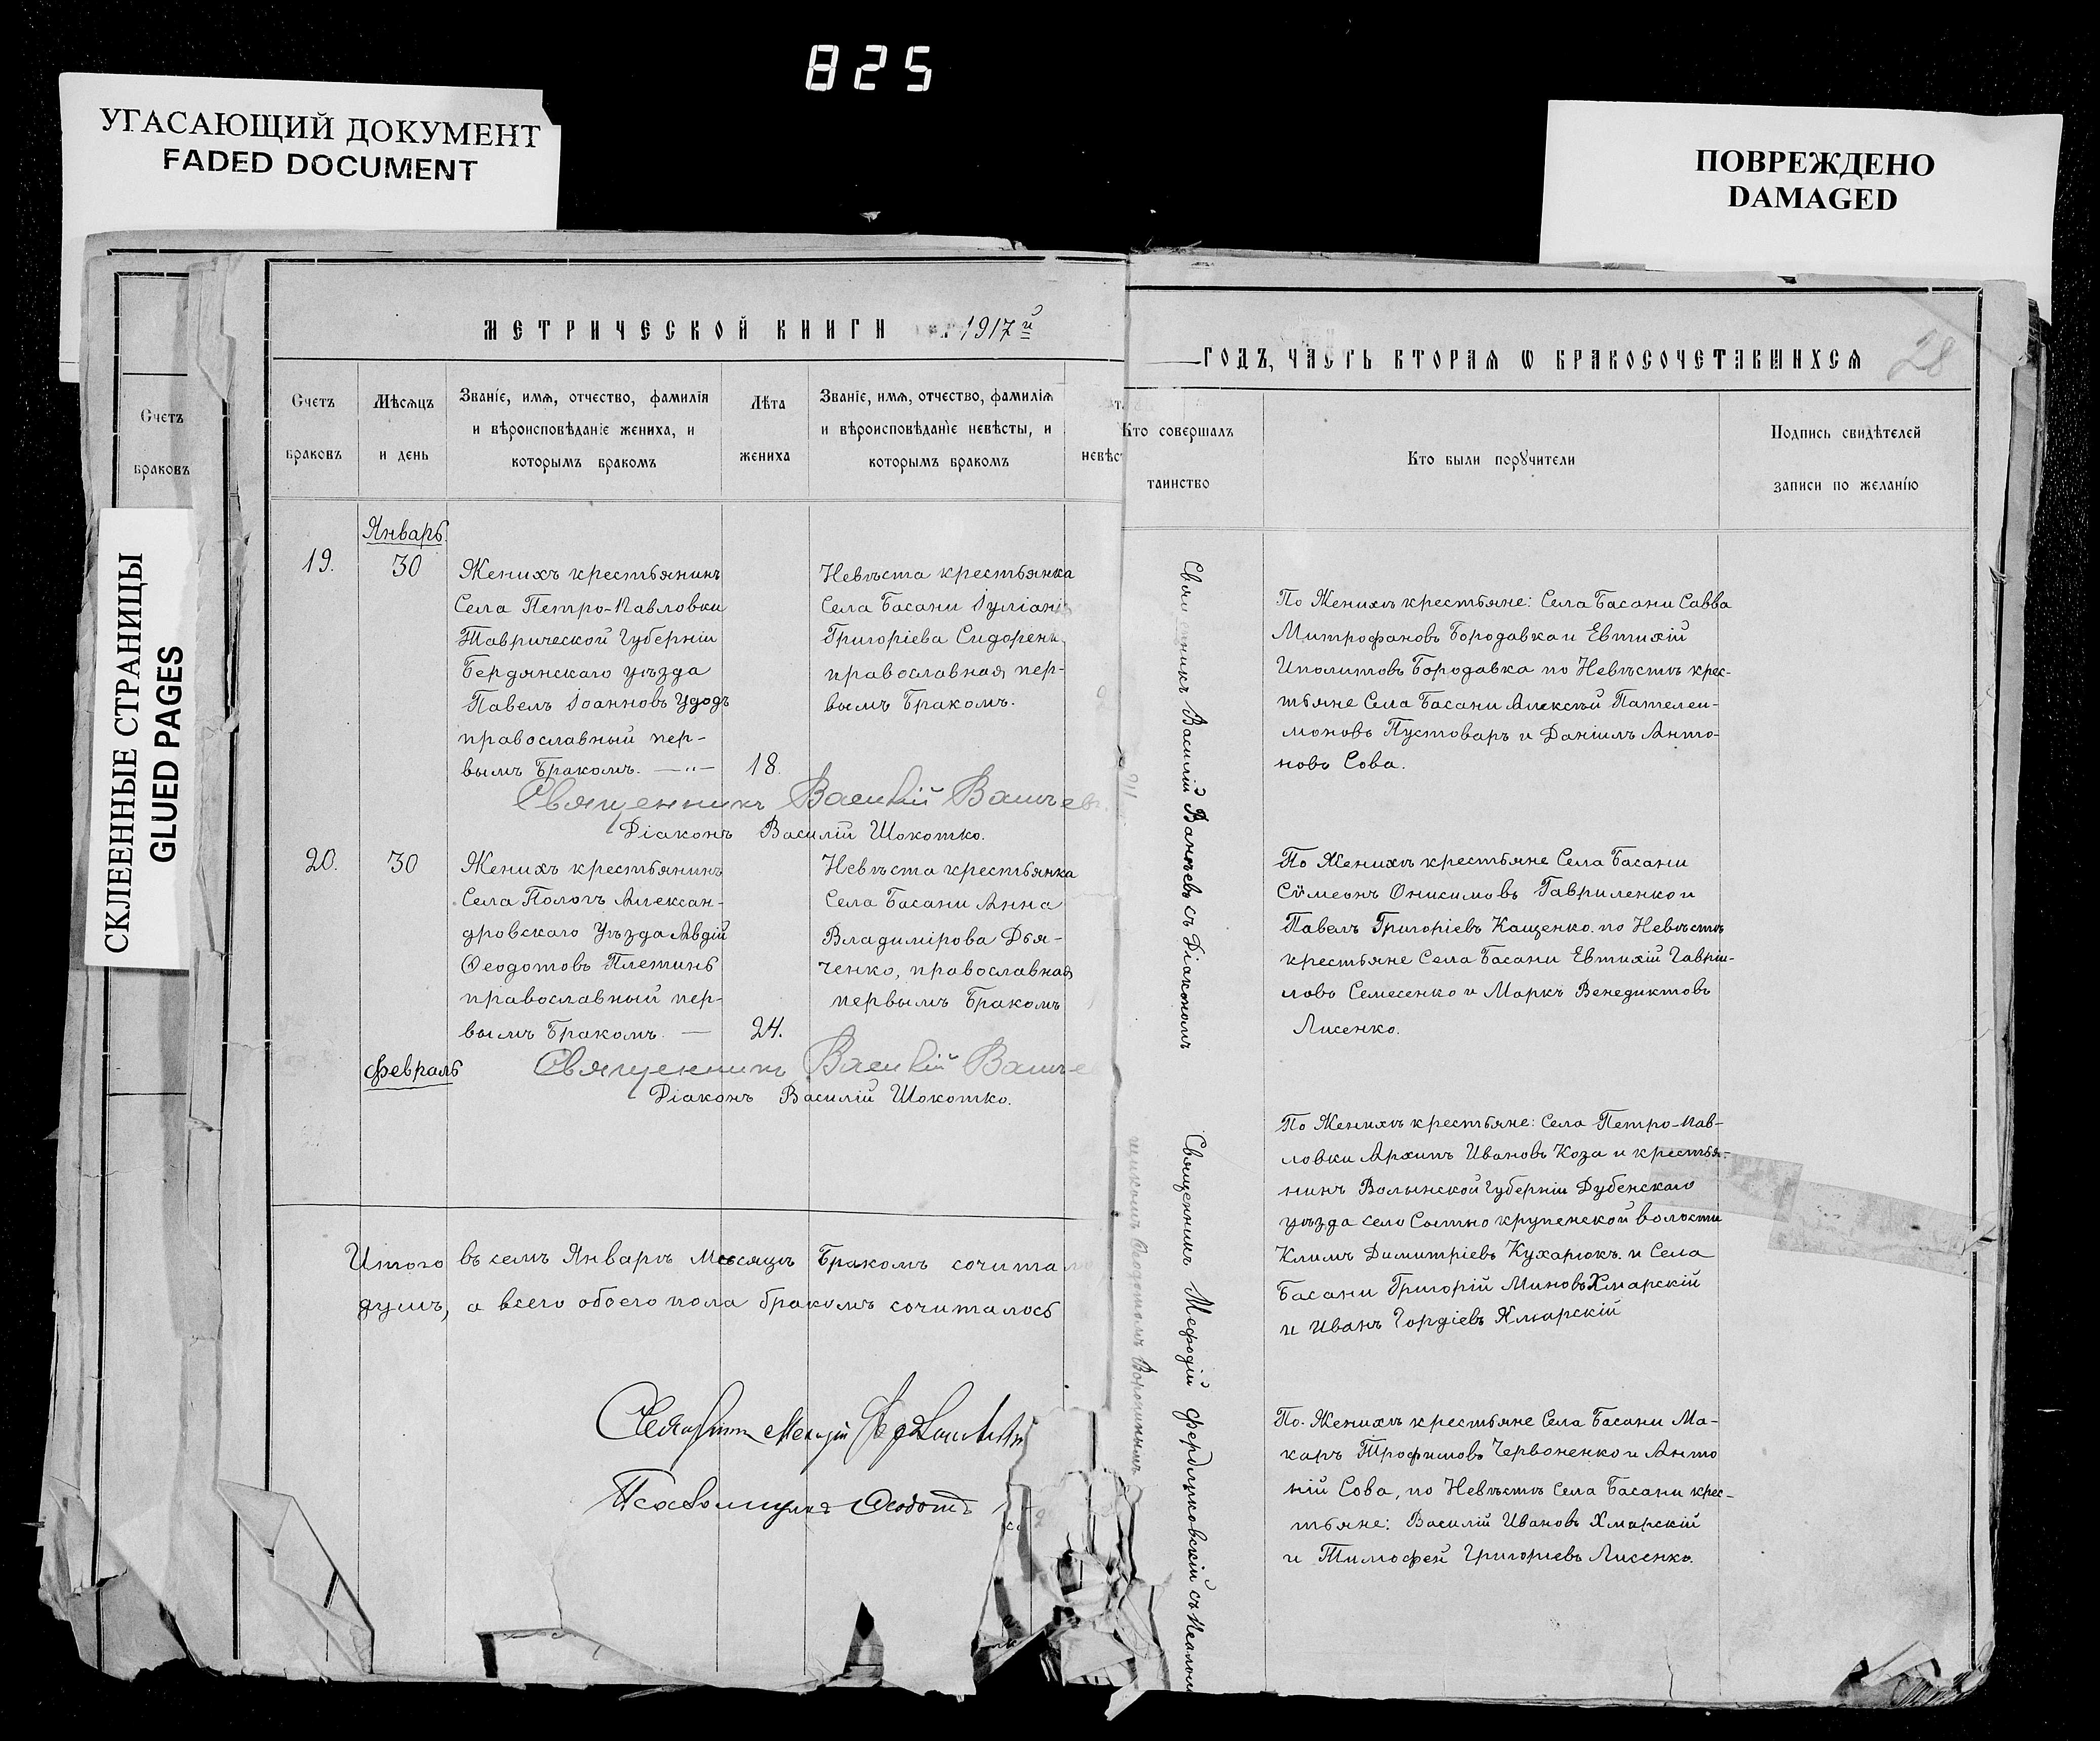 825
УГАСАЮЩИЙ ДОКУМЕНТ
FADED DOCUMENT
ПОВРЕЖДЕНО
DAMAGED
СКЛЕЕННЫЕ СТРАНИЦЫ
GLUED PAGES
Счетъ
браковъ
МЕТРИЧЕСКОЙ КНИГИ 1917й
Счетъ
браковъ
Мѣсяцъ
и день
Званіе, имя, отчество, фамилія
и вѣроисповѣданіе жениха, и
которымъ бракомъ
Лѣта
жениха
Званіе, имя, отчество, фамилія
и вѣроисповѣданіе невѣсты, и
которымъ бракомъ
невѣс
Январь
19.
30
Женихъ крестьянинъ
Села Петро-Павловки
Таврической Губерніи
Бердянскаго уѣзда
Павелъ Іоанновъ Удодъ
православный пер-
вымъ Бракомъ.
18.
Невѣста крестьянка
Села Басани Іуліанія
Григоріева Сидоренк
православная пер-
вымъ Бракомъ.
Священникъ Василій
Діаконъ Василій Шокотко.
20.
30
Женихъ крестьянинъ
Села Пологъ Алексан-
дровскаго Уѣзда Авдій
Ѳеодотовъ Плетинь
православный пер-
вымъ Бракомъ. —
24.
Невѣста крестьянка
Села Басани Анна
Владимірова Дья-
ченко, православная
первымъ Бракомъ
Февраль
Священникъ Василій
Діаконъ Василій Шокотко.
Итого въ семъ Январѣ Мѣсяцѣ Бракомъ сочита
душъ, а всего обоего пола бракомъ сочиталось
Псаломщикъ Ѳеодотъ
ГОДЪ, ЧАСТЬ ВТОРАЯ Ѡ БРАКОСОЧЕТАВШИХСЯ
28
Кто совершалъ
таинство
Кто были поручители
Подпись свидѣтелей
записи по желанію
Священникъ Василій Ванчъевъ съ Діакономъ
По Женихѣ крестьяне: Села Басани Савва
Митрофановъ Бородавка и Евтихій
Иполитовъ Бородавка по Невѣстѣ крес-
тьяне Села Басани Алексѣй Пателеи-
моновъ Пустоваръ и Даніилъ Анто-
новъ Сова.
По Женихѣ крестьяне Села Басани
Сѵмеонъ Онисимовъ Гавриленко и
Павелъ Григоріевъ Кащенко. по Невѣстѣ
крестьяне Села Басани Евтихій Гаврии-
ловъ Семесенко и Маркъ Венедиктовъ
Лисенко.
Священникъ Мефодій съ
По Женихѣ крестьяне: Села Петро-Пав-
ловки Архипъ Ивановъ Коза и крестья-
нинъ Волынской Губерніи Дубенскаго
уѣзда село Сытно крупенской волости
Климъ Димитріевъ Кухарюкъ. и Села
Басани Григорій Миновъ Хмарскій
и Иванъ Гордіевъ Хмарскій
По. Женихѣ крестьяне Села Басани Ма-
каръ Трофимовъ Червоненко и Анто
ній Сова, по Невѣстѣ Села Басани крес-
тьяне: Василій Ивановъ Хмарскій
и Тимофей Григорьевъ Лисенко.